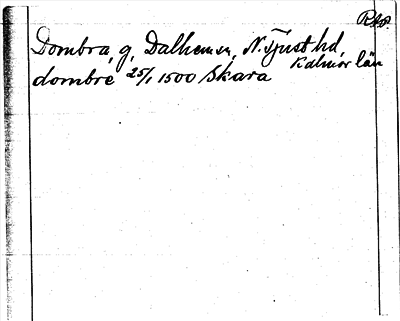 Dombra, g, Dalhemsn, N. Tjust hd,
Kalmar län
dombre 25/1 1500 Skara